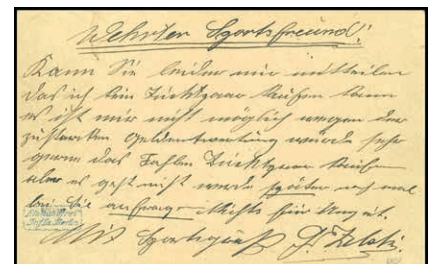 Wehrter Sportsfreund!
Kann Sie leider nur mitteilen
das ich kein Zuchtpaar kaufen kann
es ist mir nicht möglich wegen der
zu starken Geldentwertung würde sehr
gerne das Zuchtpaar kaufen
aber es geht nicht werde später noch mal
bei Sie anfragen Nichts für Ungut.
Mit Sportsgruß